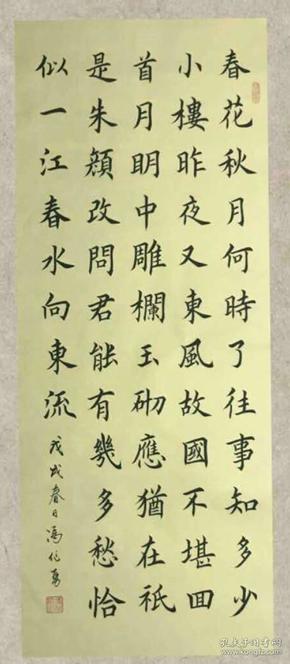 春花秋月何時了往事知多少
小樓昨夜又東風故國不堪回
首月明中雕欄玉砌應猶在祗
是朱顏改問君能有幾多愁恰
似一江春水向東流
戊戌春日馮